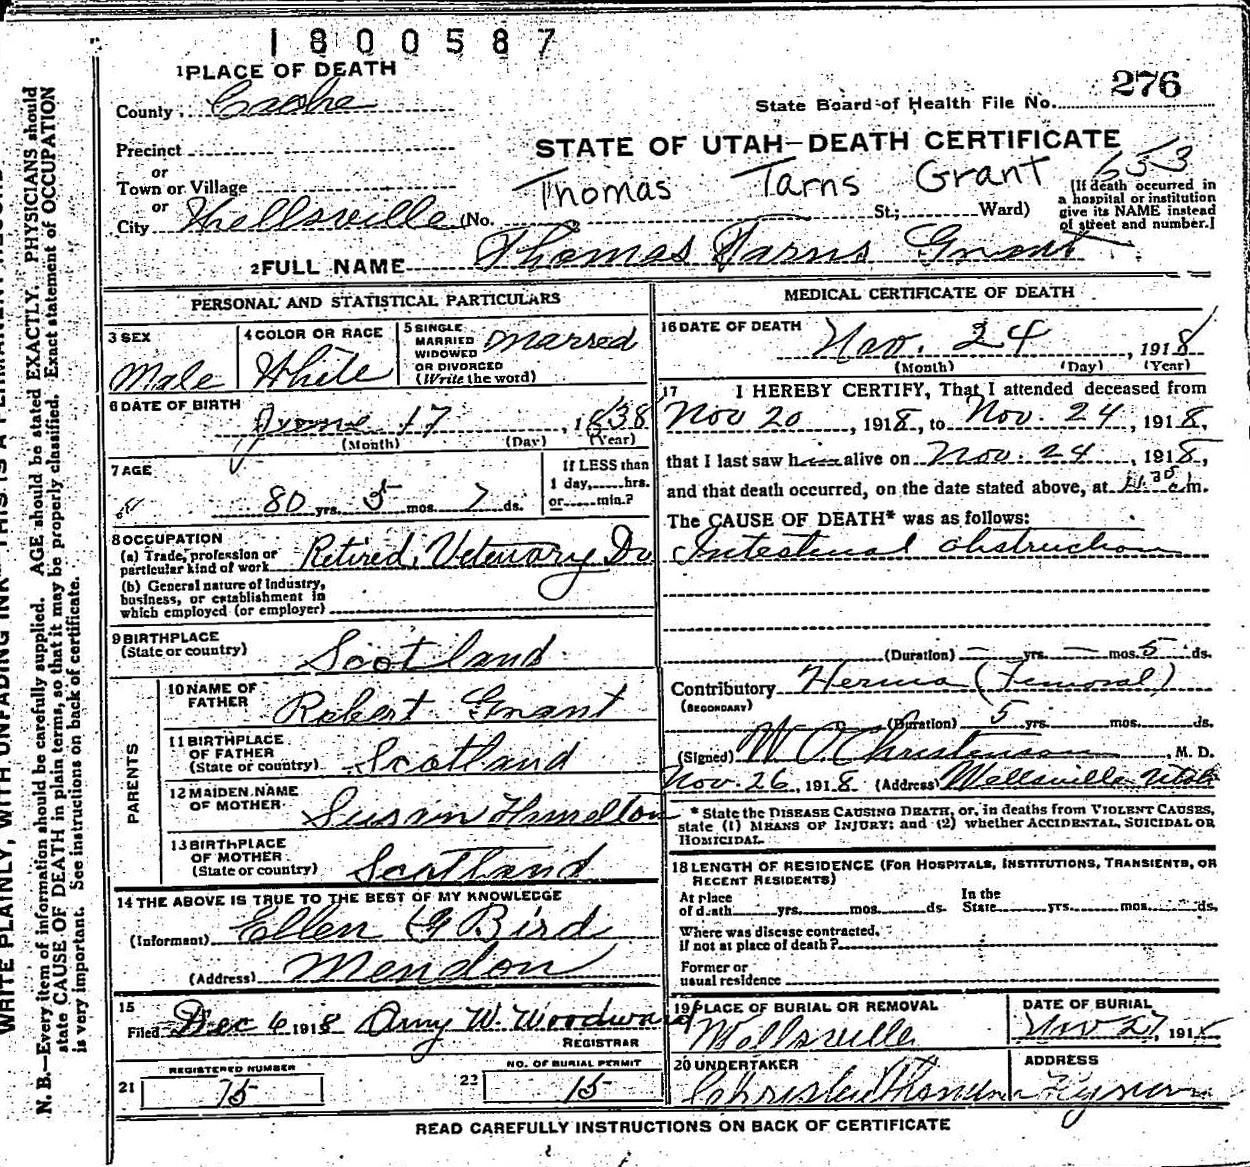 1800587
1 PLACE OF DEATH
County Cache
276
State Board of Health File No.
Precinct
STATE OF UTAH—DEATH CERTIFICATE
or
Town or Village
Thomas Tarns Grant 653
or
City Wellsville (No. St.; Ward)
[If death occurred in
a hospital or institution
give its NAME instead
of street and number.]
2 FULL NAME Thomas Tarns Grant
PERSONAL AND STATISTICAL PARTICULARS
3 SEX
Male
4 COLOR OR RACE
White
5 SINGLE
MARRIED
WIDOWED
OR DIVORCED
(Write the word)
Married
6 DATE OF BIRTH
June 17, 1838
(Month) (Day) (Year)
7 AGE
80 yrs. 5 mos. 7 ds.
If LESS than
1 day, hrs.
or min.?
8 OCCUPATION
(a) Trade, profession or
particular kind of work Retired, Vetenary Dr
(b) General nature of industry,
business, or establishment in
which employed (or employer)
9 BIRTHPLACE
(State or country) Scotland
PARENTS
10 NAME OF
FATHER Robert Grant
11 BIRTHPLACE
OF FATHER
(State or country) Scotland
12 MAIDEN NAME
OF MOTHER Susain Hamelton
13 BIRTHPLACE
OF MOTHER
(State or country) Scotland
14 THE ABOVE IS TRUE TO THE BEST OF MY KNOWLEDGE
(Informant) Ellen G Bird
(Address) Mendon
15
Filed Dec 6 1918 Amy W. Woodward
REGISTRAR
21 REGISTERED NUMBER
75
22 NO. OF BURIAL PERMIT
15
MEDICAL CERTIFICATE OF DEATH
16 DATE OF DEATH
Nov. 24, 1918
(Month) (Day) (Year)
17 I HEREBY CERTIFY, That I attended deceased from
Nov 20, 1918, to Nov. 24, 1918,
that I last saw him alive on Nov. 24, 1918,
and that death occurred, on the date stated above, at 11.30 a.m.
The CAUSE OF DEATH* was as follows:
Intestinal obstruction
(Duration) — yrs. — mos. 5 ds.
Contributory Hernia (Femoral)
(SECONDARY)
(Duration) 5 yrs. mos. ds.
(Signed) W O Christenson, M. D.
Nov. 26, 1918 (Address) Wellsville Utah
* State the DISEASE CAUSING DEATH, or, in deaths from VIOLENT CAUSES,
state (1) MEANS OF INJURY; and (2) whether ACCIDENTAL, SUICIDAL OR
HOMICIDAL.
18 LENGTH OF RESIDENCE (FOR HOSPITALS, INSTITUTIONS, TRANSIENTS, OR
RECENT RESIDENTS)
At place
of death yrs. mos. ds.
In the
State yrs. mos. ds.
Where was disease contracted,
if not at place of death?
Former or
usual residence
19 PLACE OF BURIAL OR REMOVAL
Wellsville
DATE OF BURIAL
Nov 27, 1918
20 UNDERTAKER
ADDRESS
READ CAREFULLY INSTRUCTIONS ON BACK OF CERTIFICATE
WRITE PLAINLY, WITH UNFADING INK—THIS IS A PERMANENT
N. B.—Every item of information should be carefully supplied. AGE should be stated EXACTLY. PHYSICIANS should
state CAUSE OF DEATH in plain terms, so that it may be properly classified. Exact statement of OCCUPATION
is very important. See instructions on back of certificate.